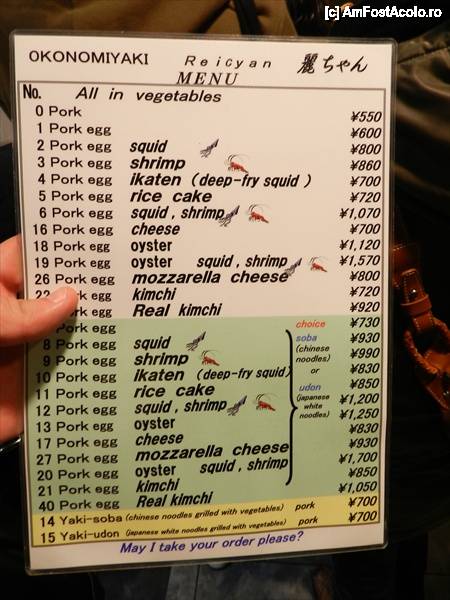 [c] AmFostAcolo.ro
OKONOMIYAKI Reicyan 麗ちゃん
MENU
No. All in vegetables
0 Pork ¥550
1 Pork egg ¥600
2 Pork egg squid ¥800
3 Pork egg shrimp ¥860
4 Pork egg ikaten (deep-fry squid) ¥700
5 Pork egg rice cake ¥720
6 Pork egg squid, shrimp ¥1,070
16 Pork egg cheese ¥700
18 Pork egg oyster ¥1,120
19 Pork egg oyster squid, shrimp ¥1,570
26 Pork egg mozzarella cheese ¥800
egg kimchi ¥720
egg Real kimchi ¥920
Pork egg choice ¥730
8 Pork egg squid soba ¥930
9 Pork egg shrimp (chinese noodles) ¥990
10 Pork egg ikaten (deep-fry squid) or ¥830
11 Pork egg rice cake udon ¥850
12 Pork egg squid, shrimp (japanese white noodles) ¥1,200
13 Pork egg oyster ¥1,250
17 Pork egg cheese ¥830
27 Pork egg mozzarella cheese ¥930
20 Pork egg oyster squid, shrimp ¥1,700
21 Pork egg kimchi ¥850
40 Pork egg Real kimchi ¥1,050
14 Yaki-soba (chinese noodles grilled with vegetables) pork ¥700
15 Yaki-udon (japanese white noodles grilled with vegetables) pork ¥700
May I take your order please?